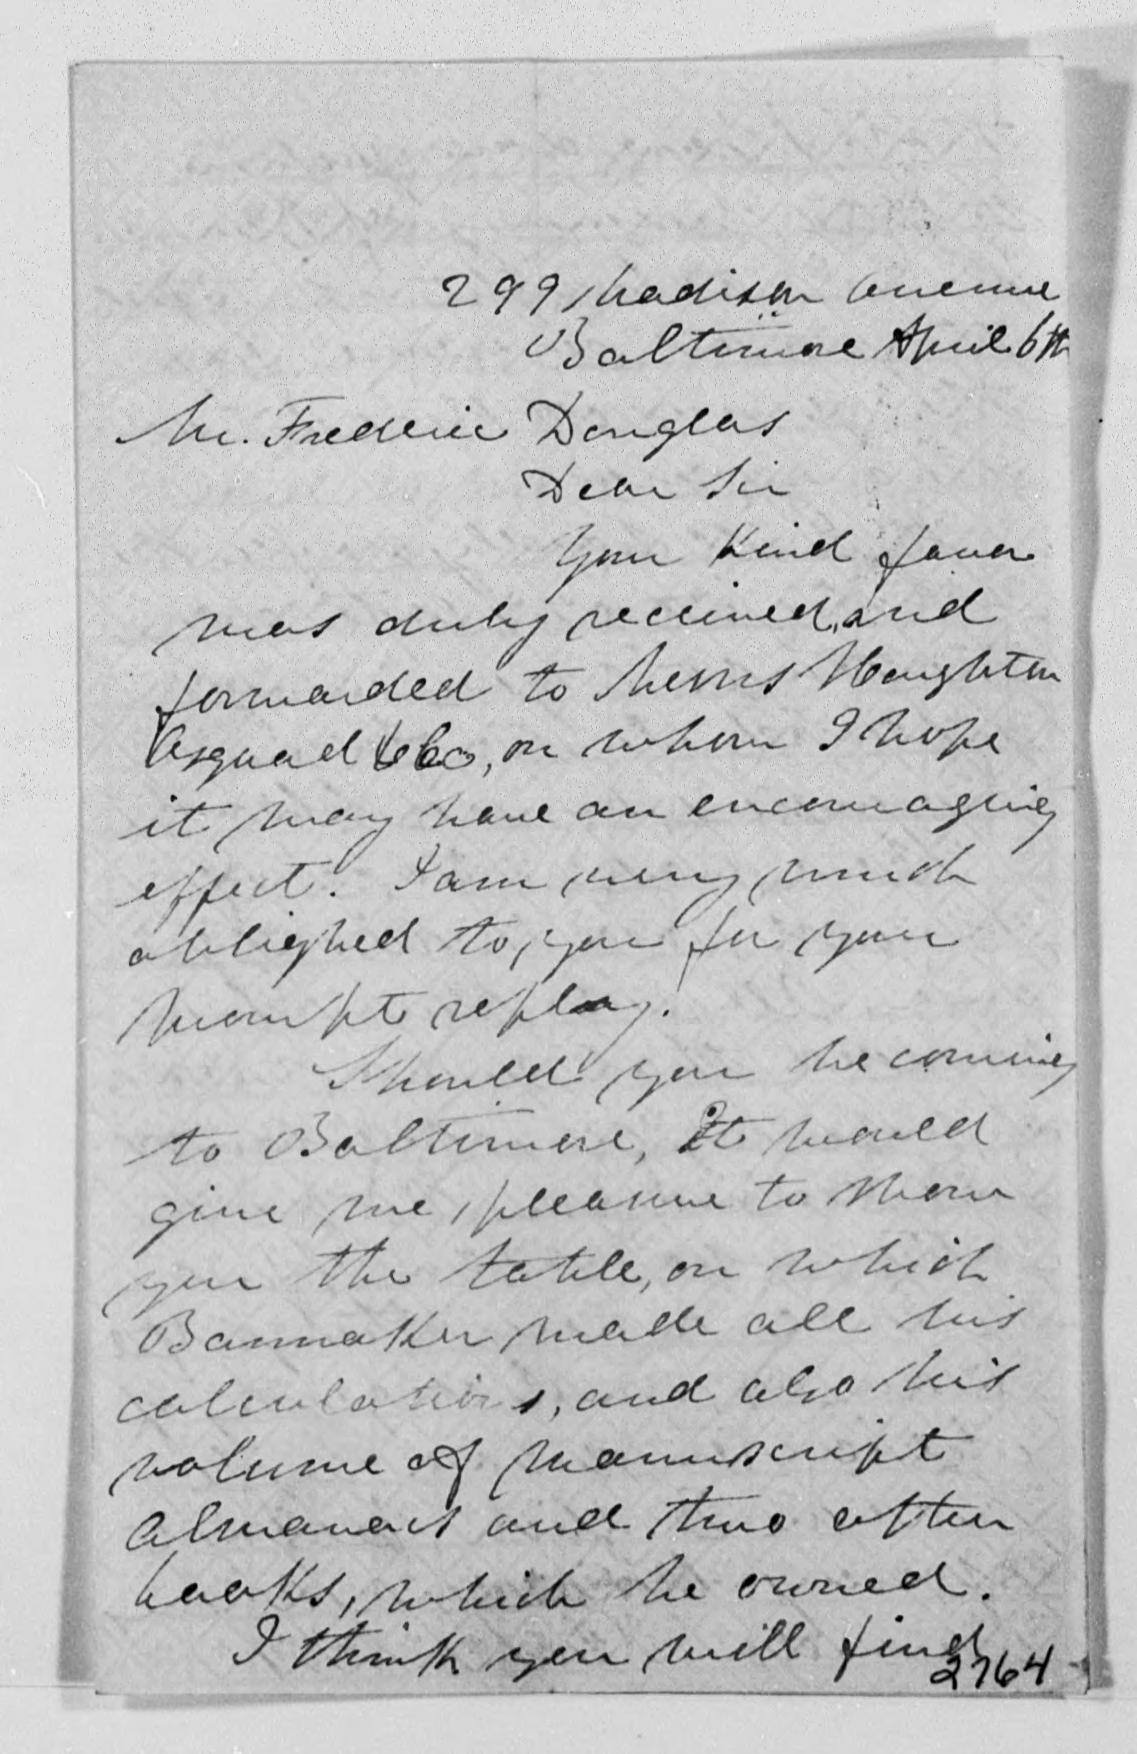 299 Madison Avenue
Baltimore April 6th
Mr. Frederic Douglas
Dear Sir
Your kind favor
was duly received, and
forwarded to Messrs Houghton
Osgood & Co, on whom I hope
it may have an encouraging
effect. I am very much
oblighed to you for your
prompt reply.
Should you be coming
to Baltimore, It would
give me pleasure to show
you the table, on which
Bannaker made all his
calculations, and also his
volume of manuscript
almanacs and two other
books, which he owned.
I think you will find
2764